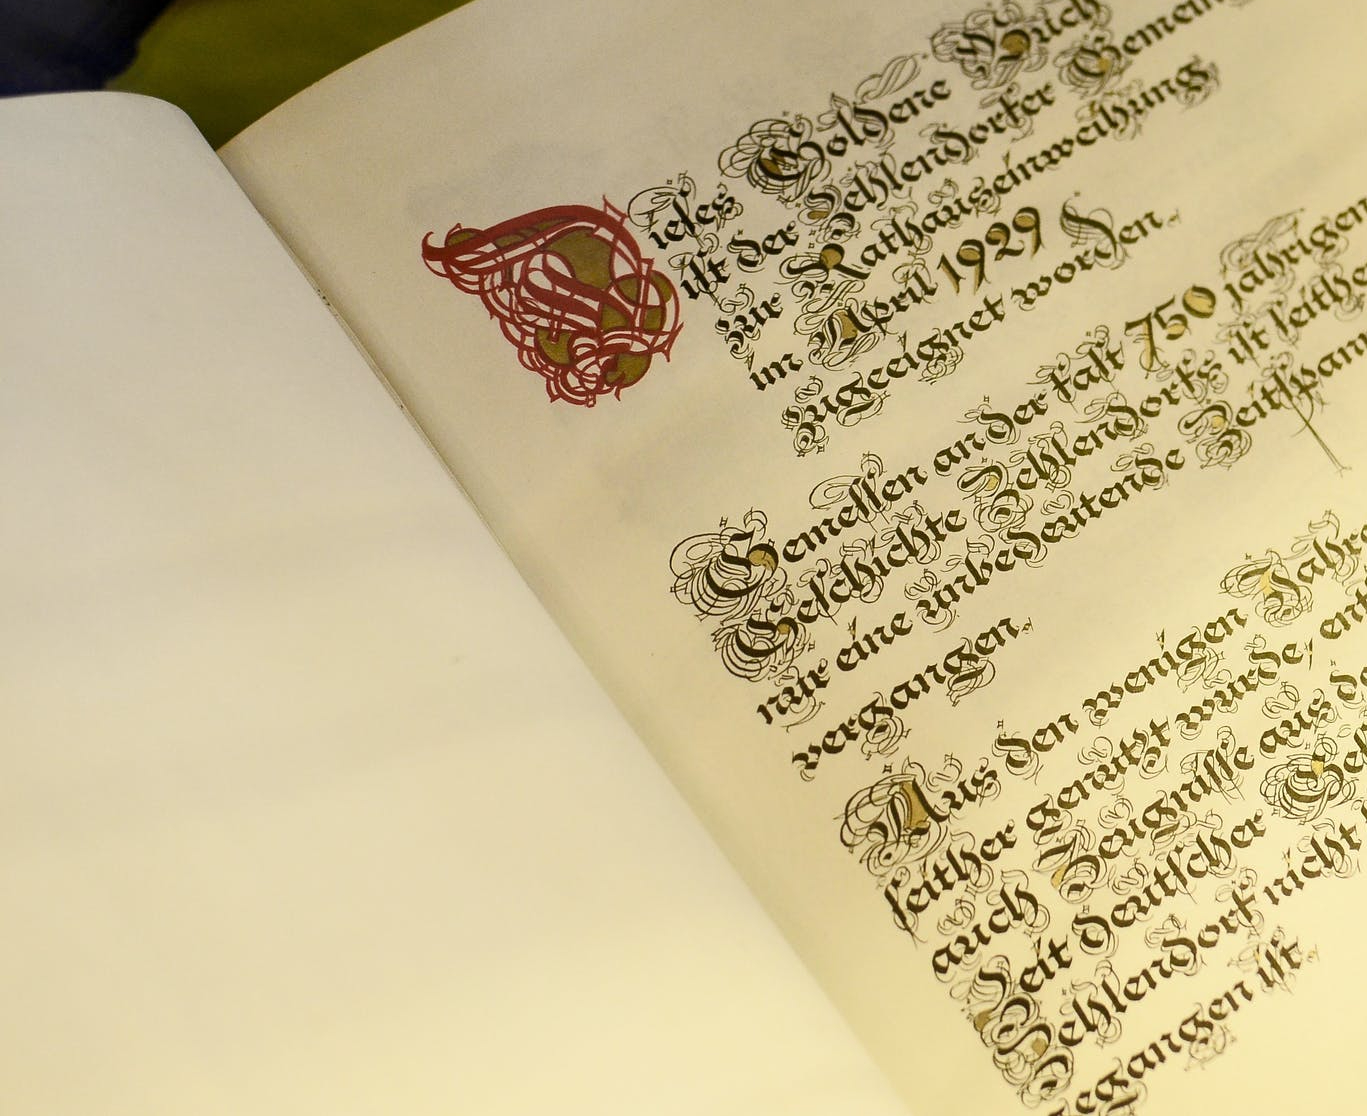 Dieſes Goldene Buch
iſt der Zehlendorfer Gemein
zur Rathauseinweihung
im April 1929
zugeeignet worden.
Gemeſſen an der faſt 750 jährigen
Geſchichte Zehlendorfs iſt ſeither
nur eine unbedeutende Zeitſpann
vergangen.
Aus den wenigen Jahre
ſeither genutzt wurde, ent
auch Zeugniſſe aus de
Zeit deutſcher Geſ
Zehlendorf nicht
gegangen iſt.